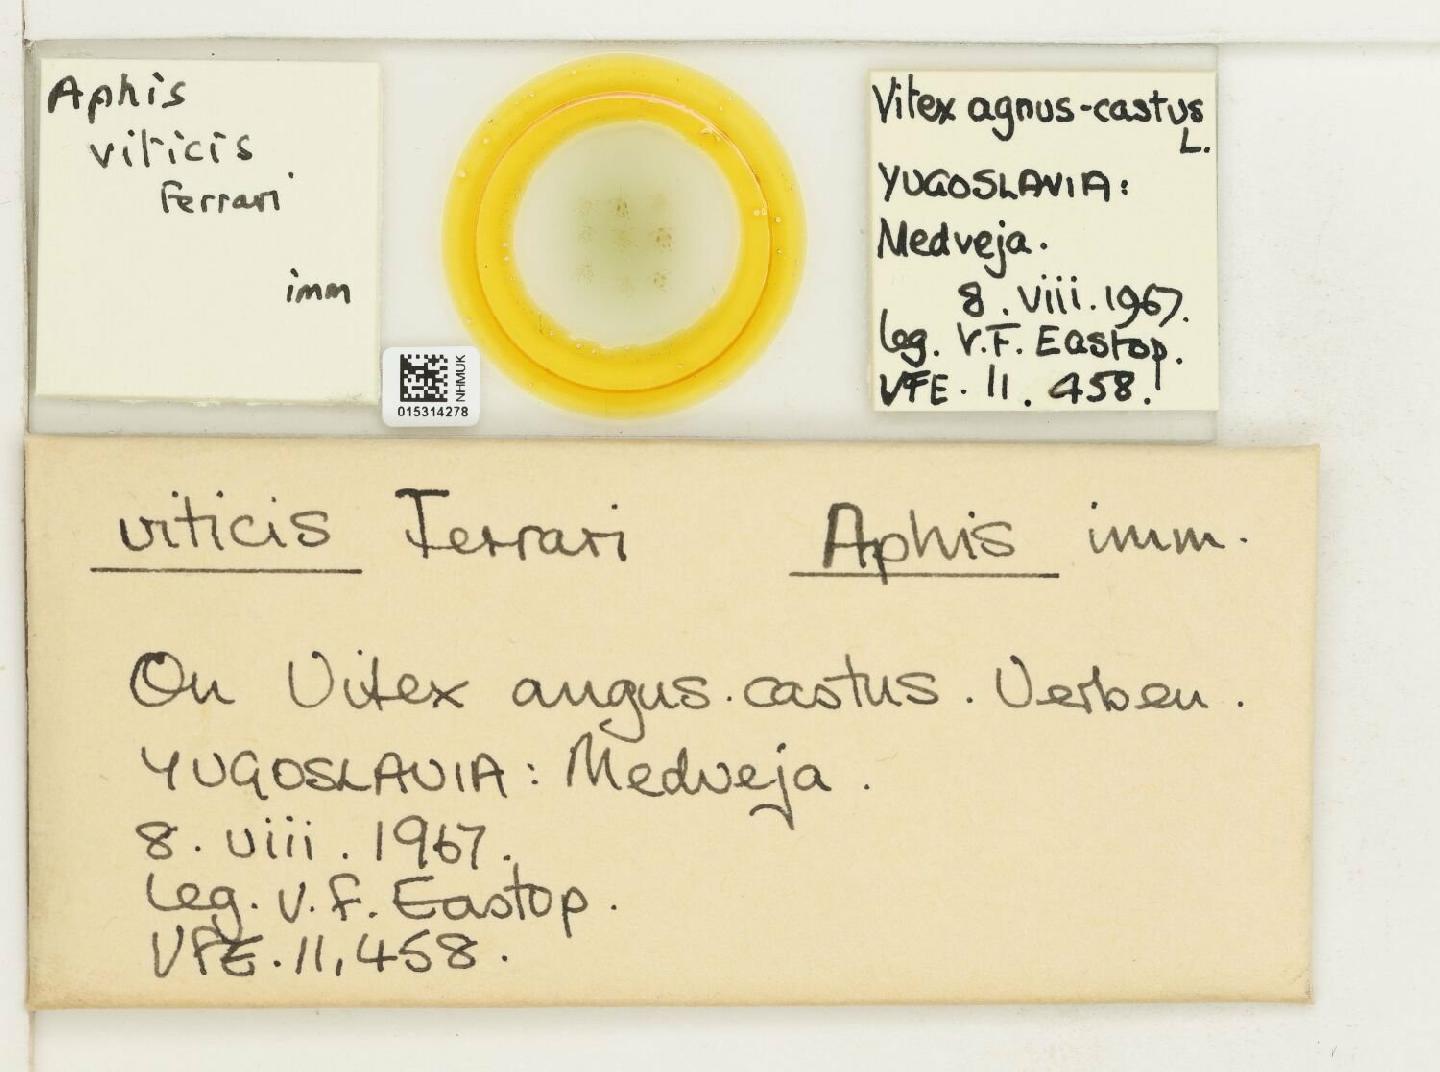 Aphis
viticis
Ferrari
imm
NHMUK
015314278
Vitex agnus-castus
L.
YUGOSLAVIA:
Medveja.
8. viii. 1967.
leg. V.F. Eastop.
VFE. 11. 458.
viticis Ferrari Aphis imm.
On Vitex angus. castus. Verben.
YUGOSLAVIA: Medveja.
8. viii. 1967.
leg. V. F. Eastop.
VFE. 11,458.